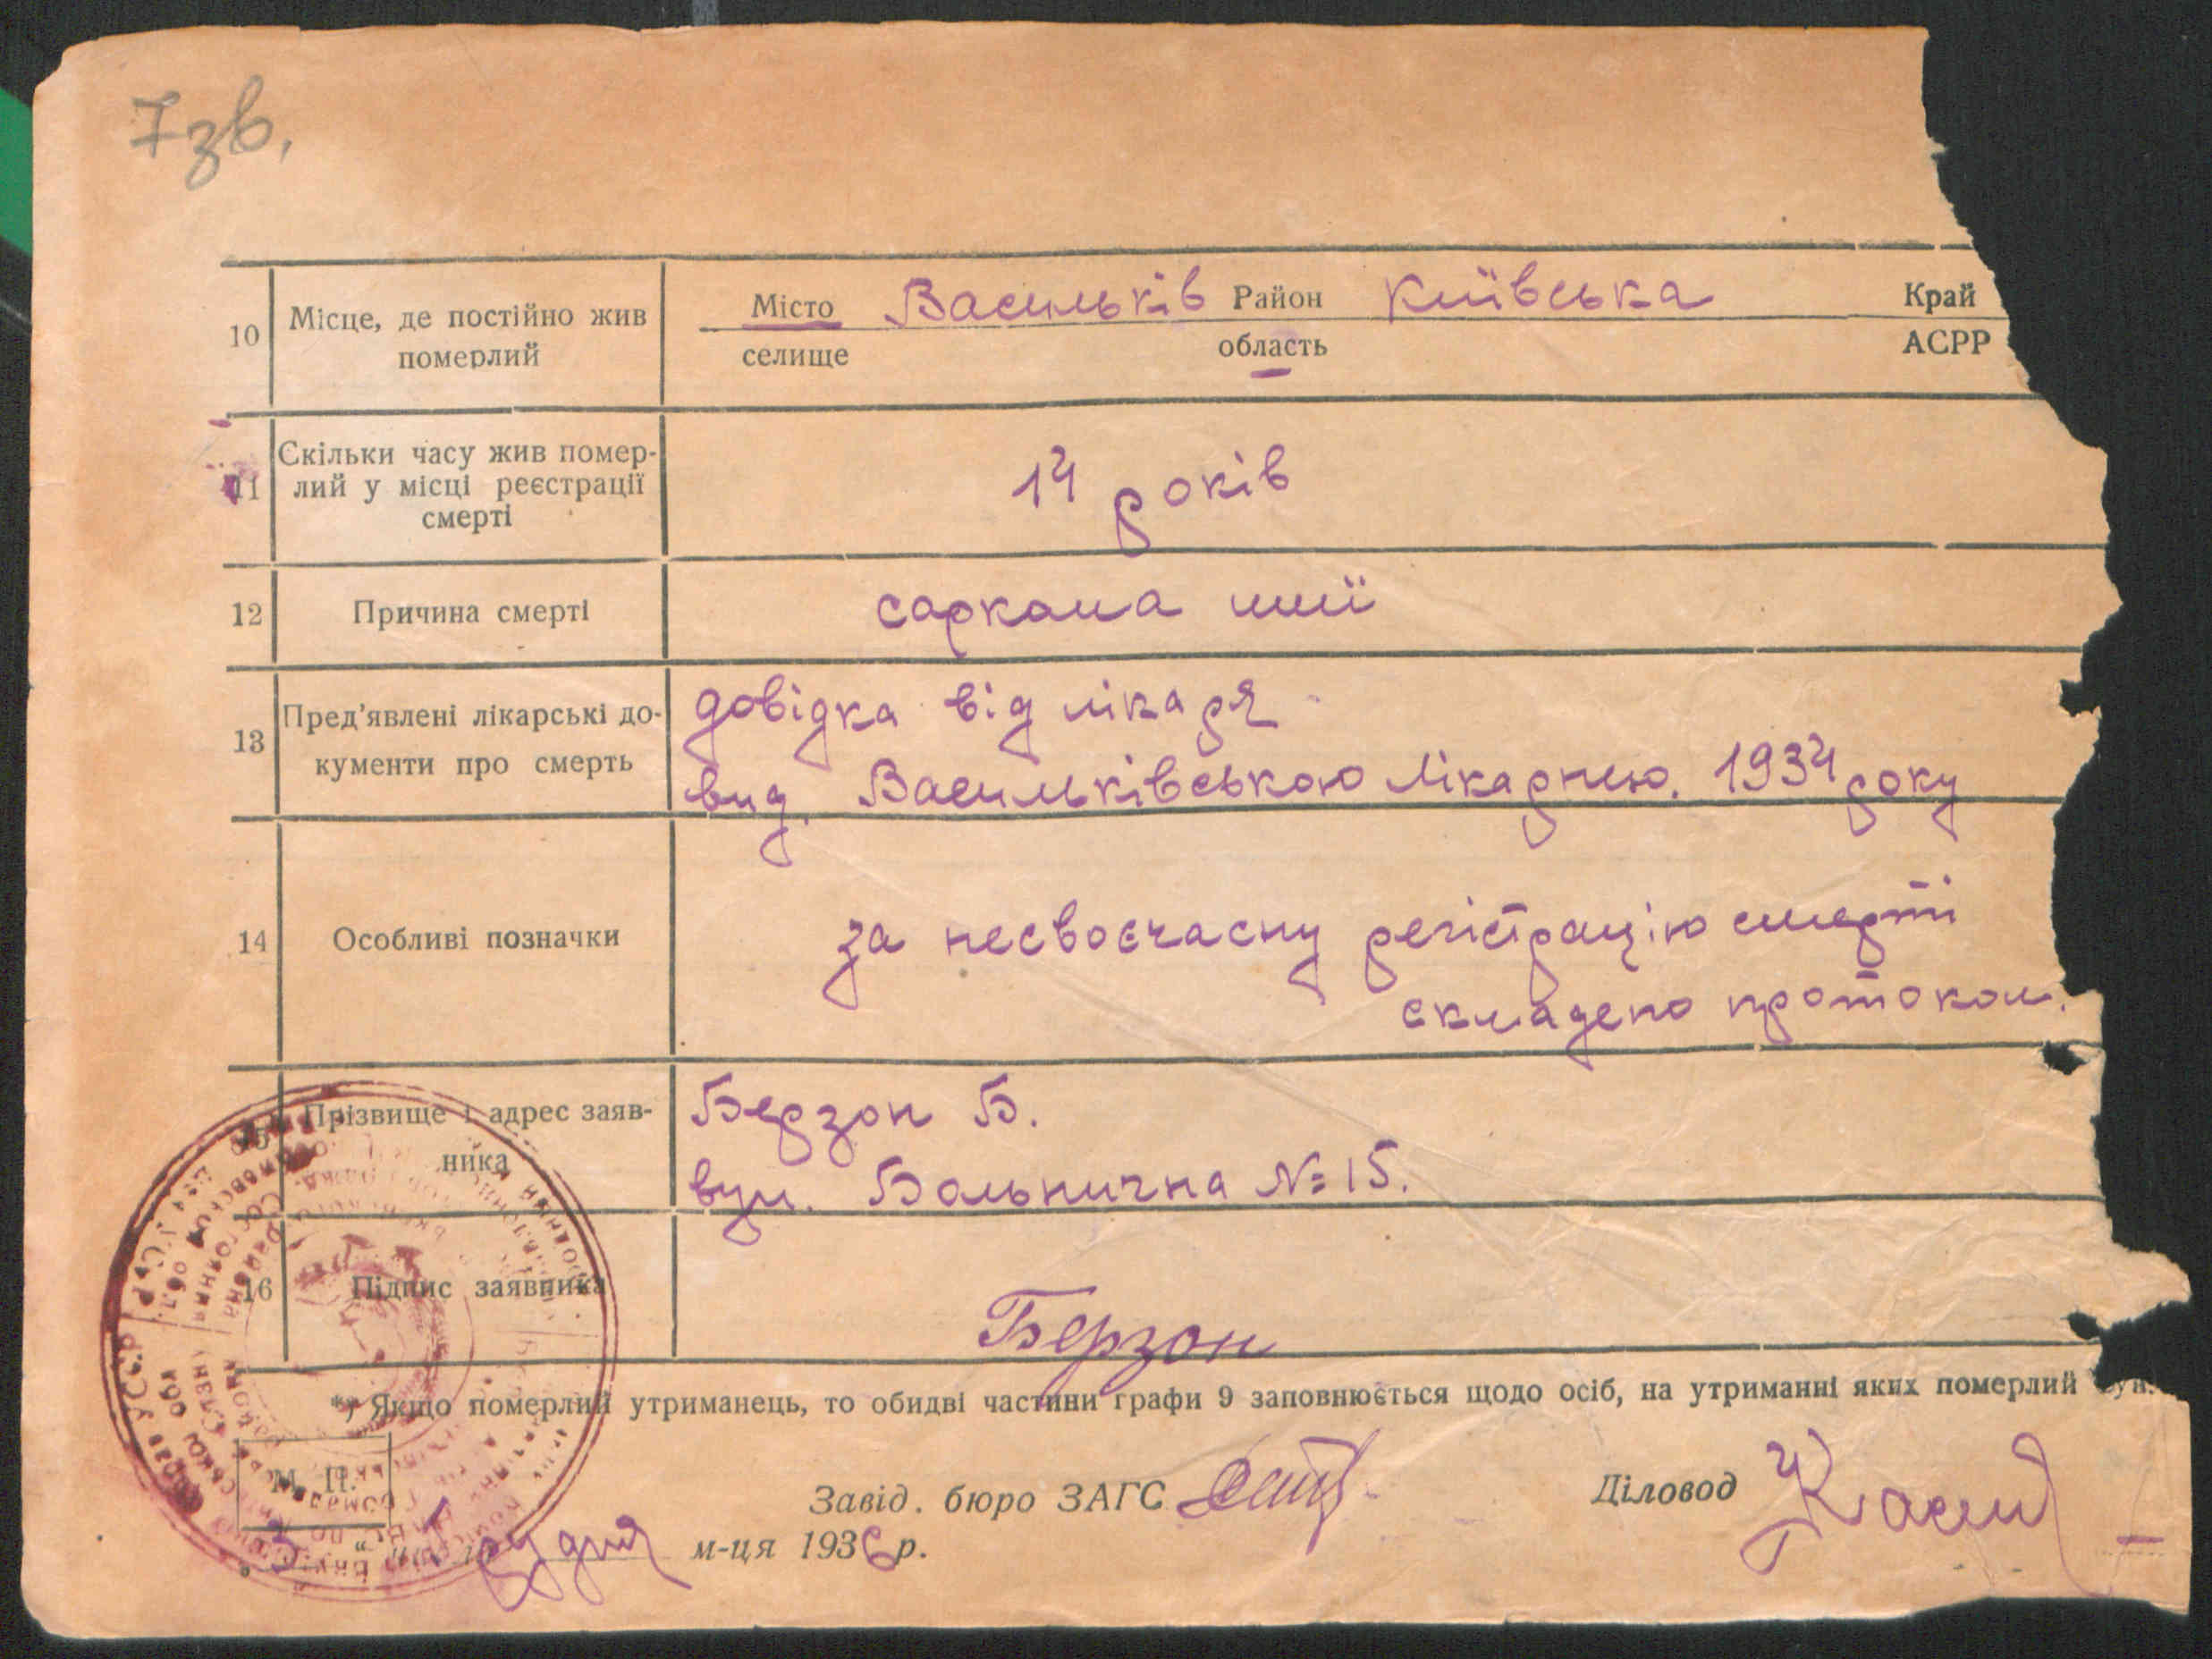 7 зв.
10 Місце, де постійно жив померлий
Місто Васильків Район Київська Край
селище область АСРР
11 Скільки часу жив помер-
лий у місці реєстрації
смерті
14 років
12 Причина смерті саркома шиї
13 Пред'явлені лікарські до-
кументи про смерть
довідка від лікаря
вид. Васильківською лікарнею. 1934 року
14 Особливі позначки
за несвоєчасну регістрацію смерті
складено протокол.
15 Прізвище і адрес заяв-
ника
Берзон Б.
вул. Больнична № 15.
16 Підпис заявника
Берзон
*) Якщо померлий утриманець, то обидві частини графи 9 заповнюється щодо осіб, на утриманні яких померлий
М. П.
Завід. бюро ЗАГС Діловод
3 грудня м-ця 1936 р.